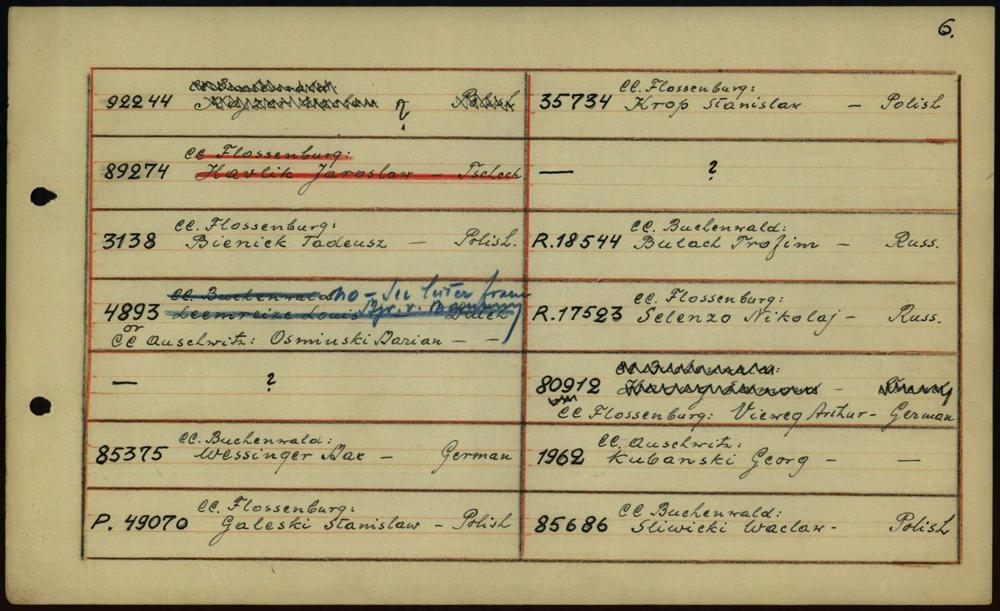 6.
92244 ?
CC. Flossenburg:
89274 Havlik Jaroslaw - Tschech
CC. Flossenburg:
3138 Bienick Tadeusz - Polish.
CC. Buchenwald no - See letter from
4893 Leemreize Louis Dutch
or
CC Auschwitz: Osminski Marian - -
- ?
CC. Buchenwald:
85375 Wessinger Max - German
CC. Flossenburg:
P. 49070 Galeski Stanislaw - Polish
CC. Flossenburg:
35734 Krop Stanislaw - Polish
- ?
CC. Buchenwald:
R.18544 Bulach Trofim - Russ.
CC. Flossenburg:
R.17523 Selenzo Nikolaj - Russ.
80912 -
CC Flossenburg: Vieweg Arthur - German
CC. Auschwitz:
1962 Kubanski Georg - -
CC Buchenwald:
85686 Sliwicki Waclaw - Polish